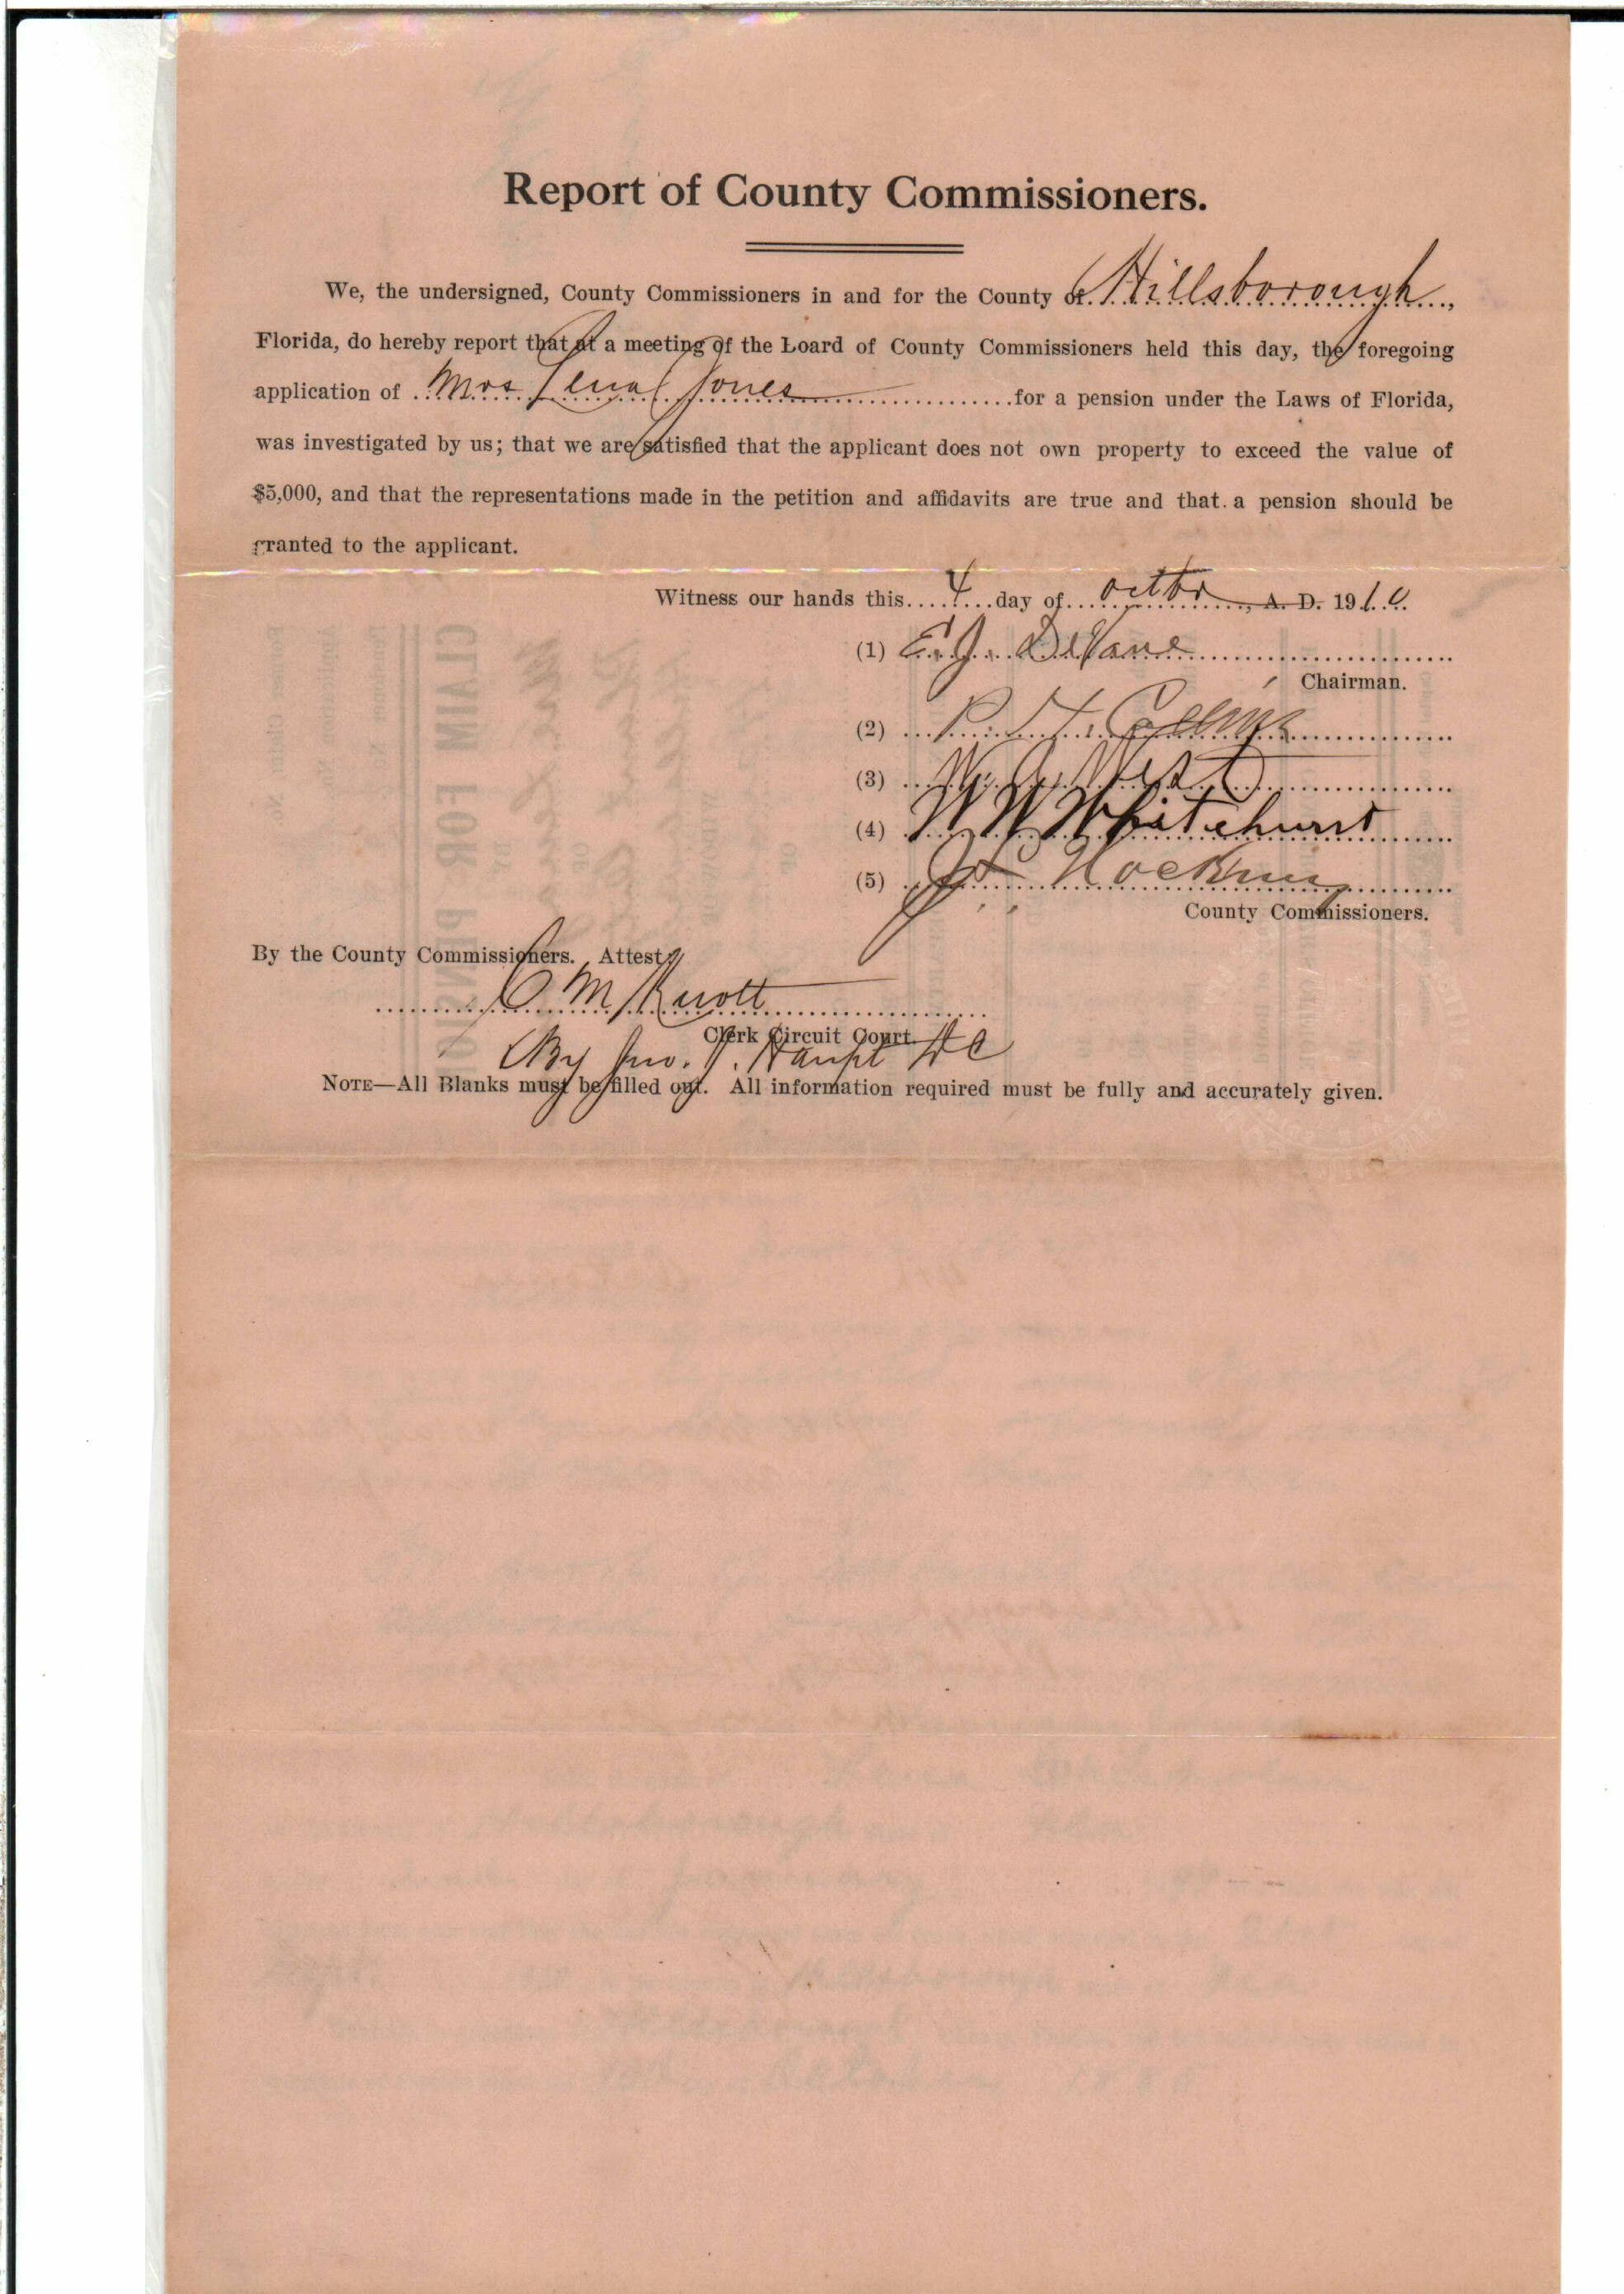 Report of County Commissioners.
We, the undersigned, County Commissioners in and for the County of Hillsborough,
Florida, do hereby report that at a meeting of the Loard of County Commissioners held this day, the foregoing
application of Mrs Lena Jones for a pension under the Laws of Florida,
was investigated by us; that we are satisfied that the applicant does not own property to exceed the value of
$5,000, and that the representations made in the petition and affidavits are true and that a pension should be
granted to the applicant.
Witness our hands this 4 day of octbr, A. D. 1910.
(1) E. J. DeVane
Chairman.
(2)
(3) West
(4) W W Whitehurst
(5)
County Commissioners.
By the County Commissioners. Attest,
C M Knott
Clerk Circuit Court.
By Jno. Haupt DC
NOTE—All Blanks must be filled out. All information required must be fully and accurately given.
CLAIM FOR